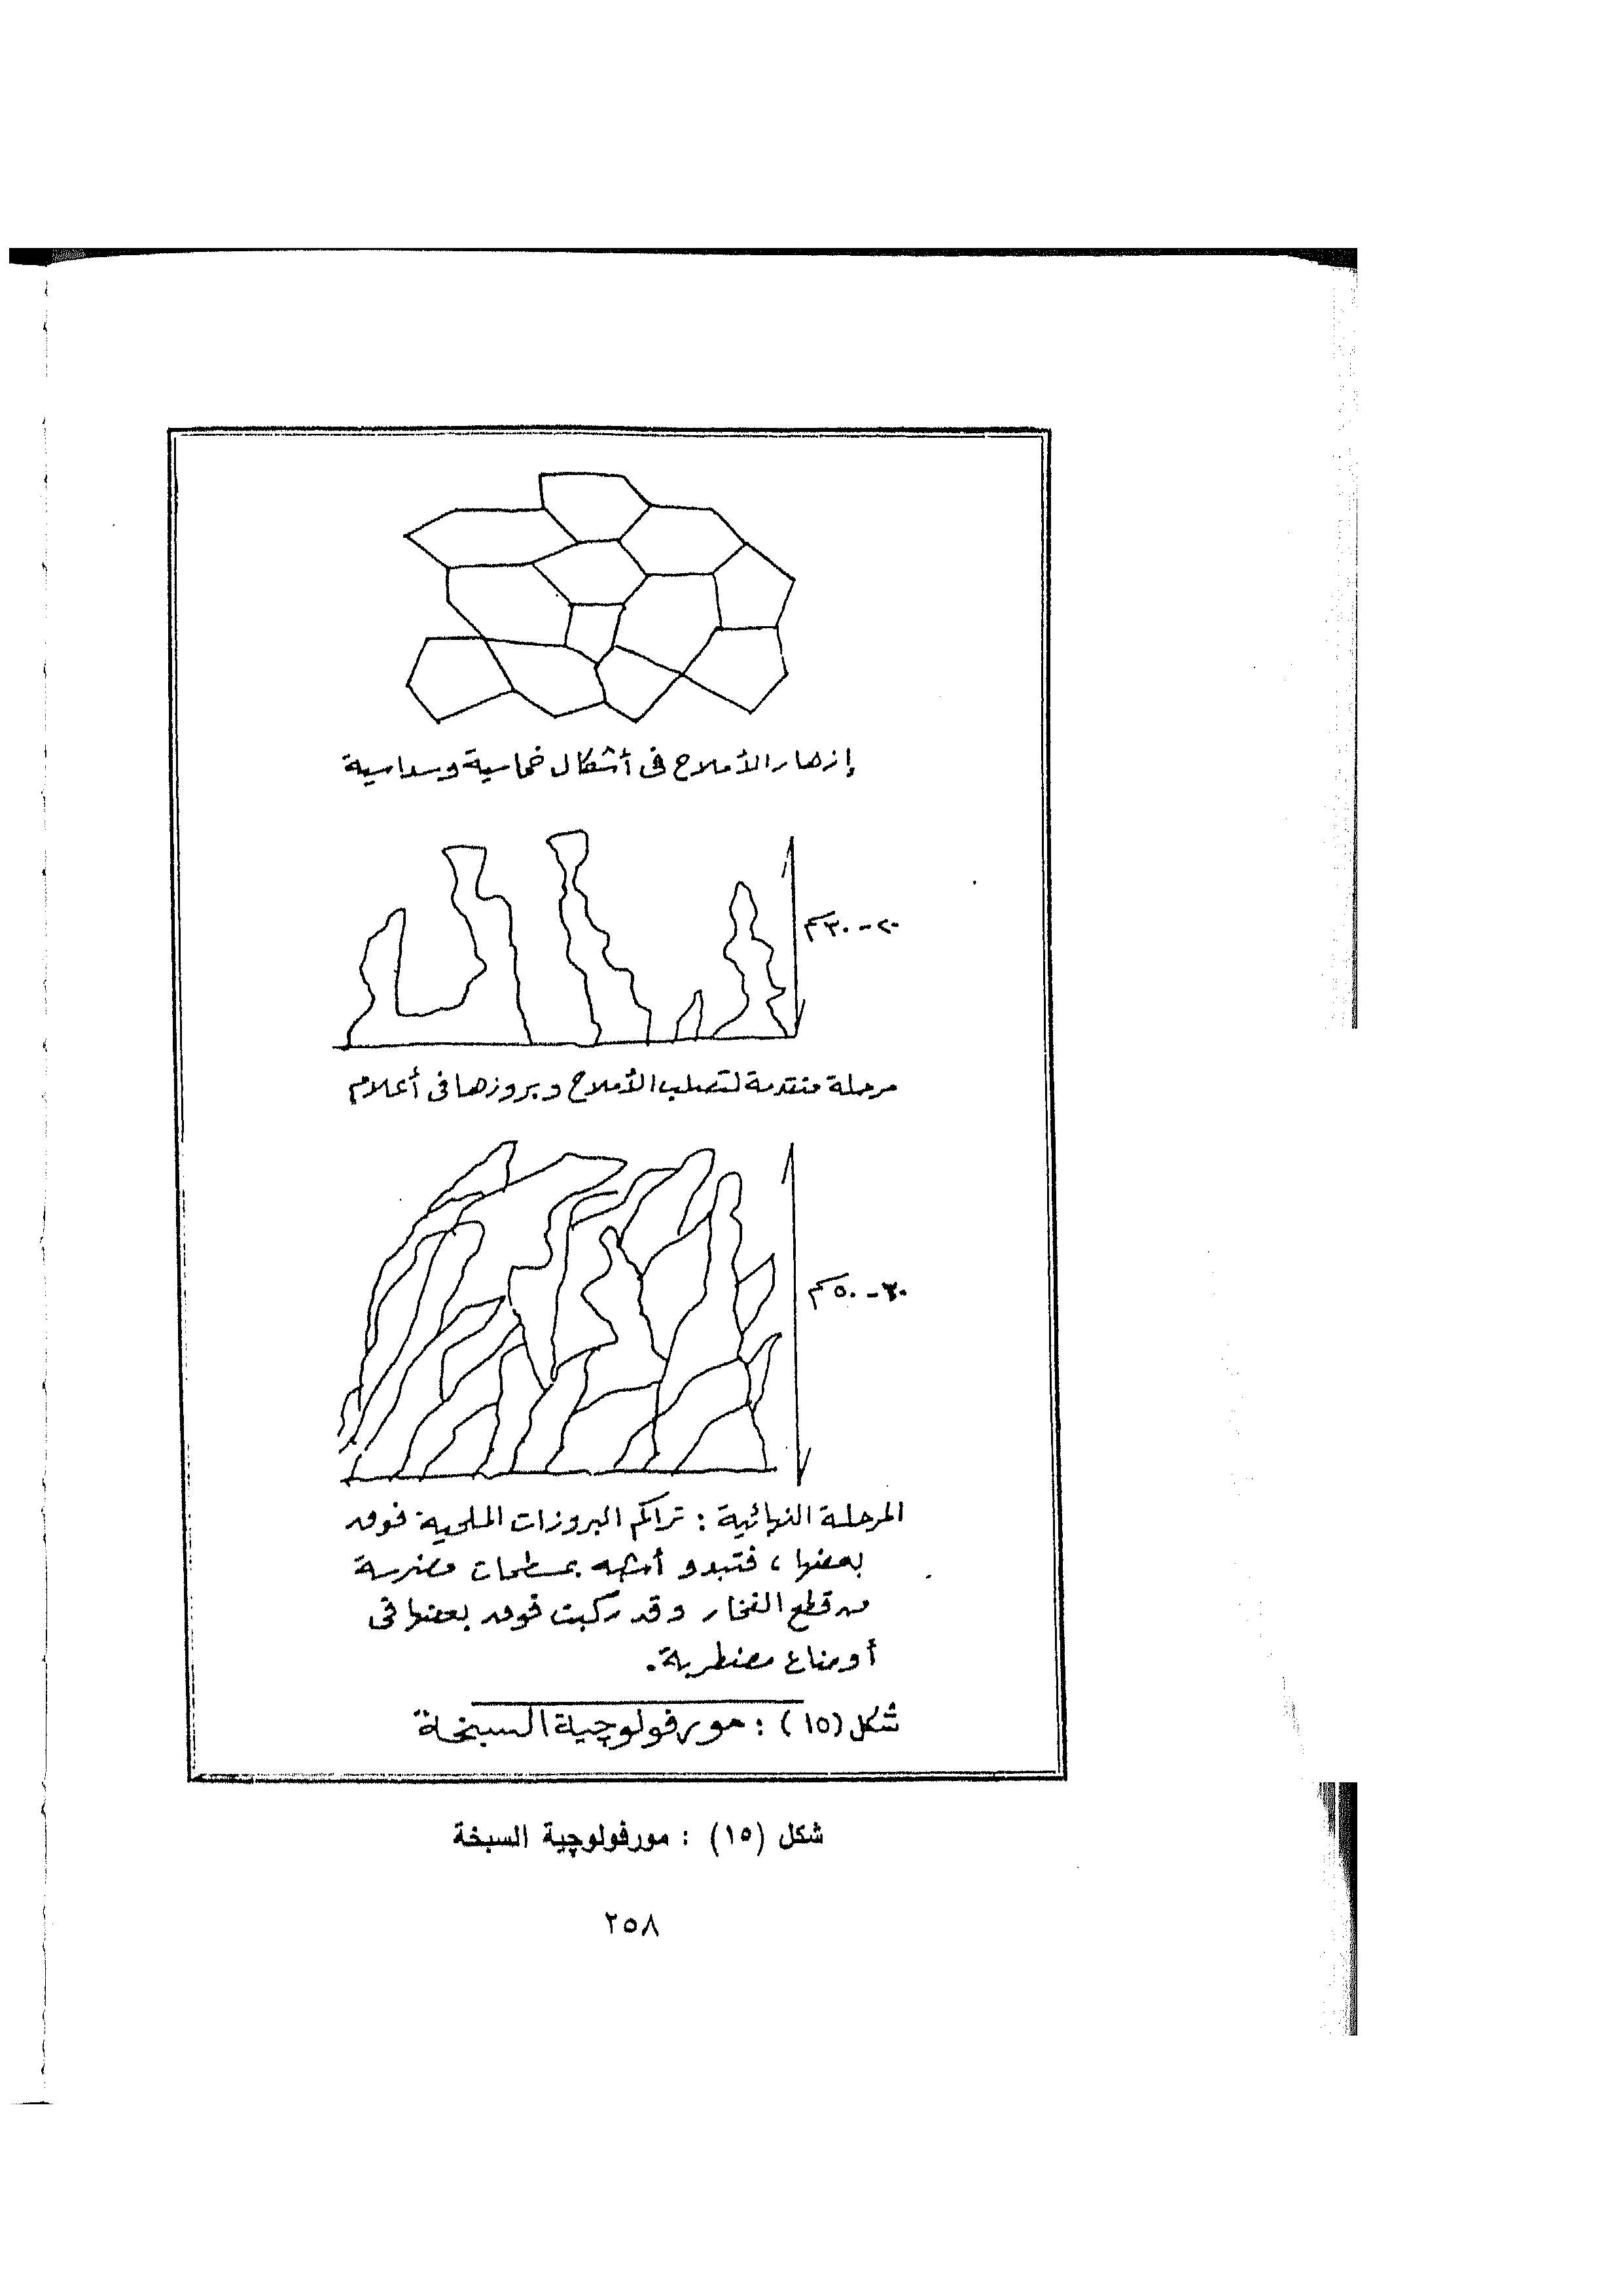 إزهار الأملاح فى أشكال خماسية وسداسية
٢٠-٣٠سم
مرحلة متقدمة لتصلب الأملاح وبروزها فى أعلام
٣٠-٥٠سم
المرحلة النهائية : تراكم البروزات الملحية فوق
بعضها ، فتبدو أشبه بمسطحات مضرسة
من قطع الفخار وقد ركبت فوق بعضها فى
أوضاع مضطربة .
شكل (١٥) : مورفولوچية السبخة
شكل (١٥) : مورفولوچية السبخة
٢٥٨